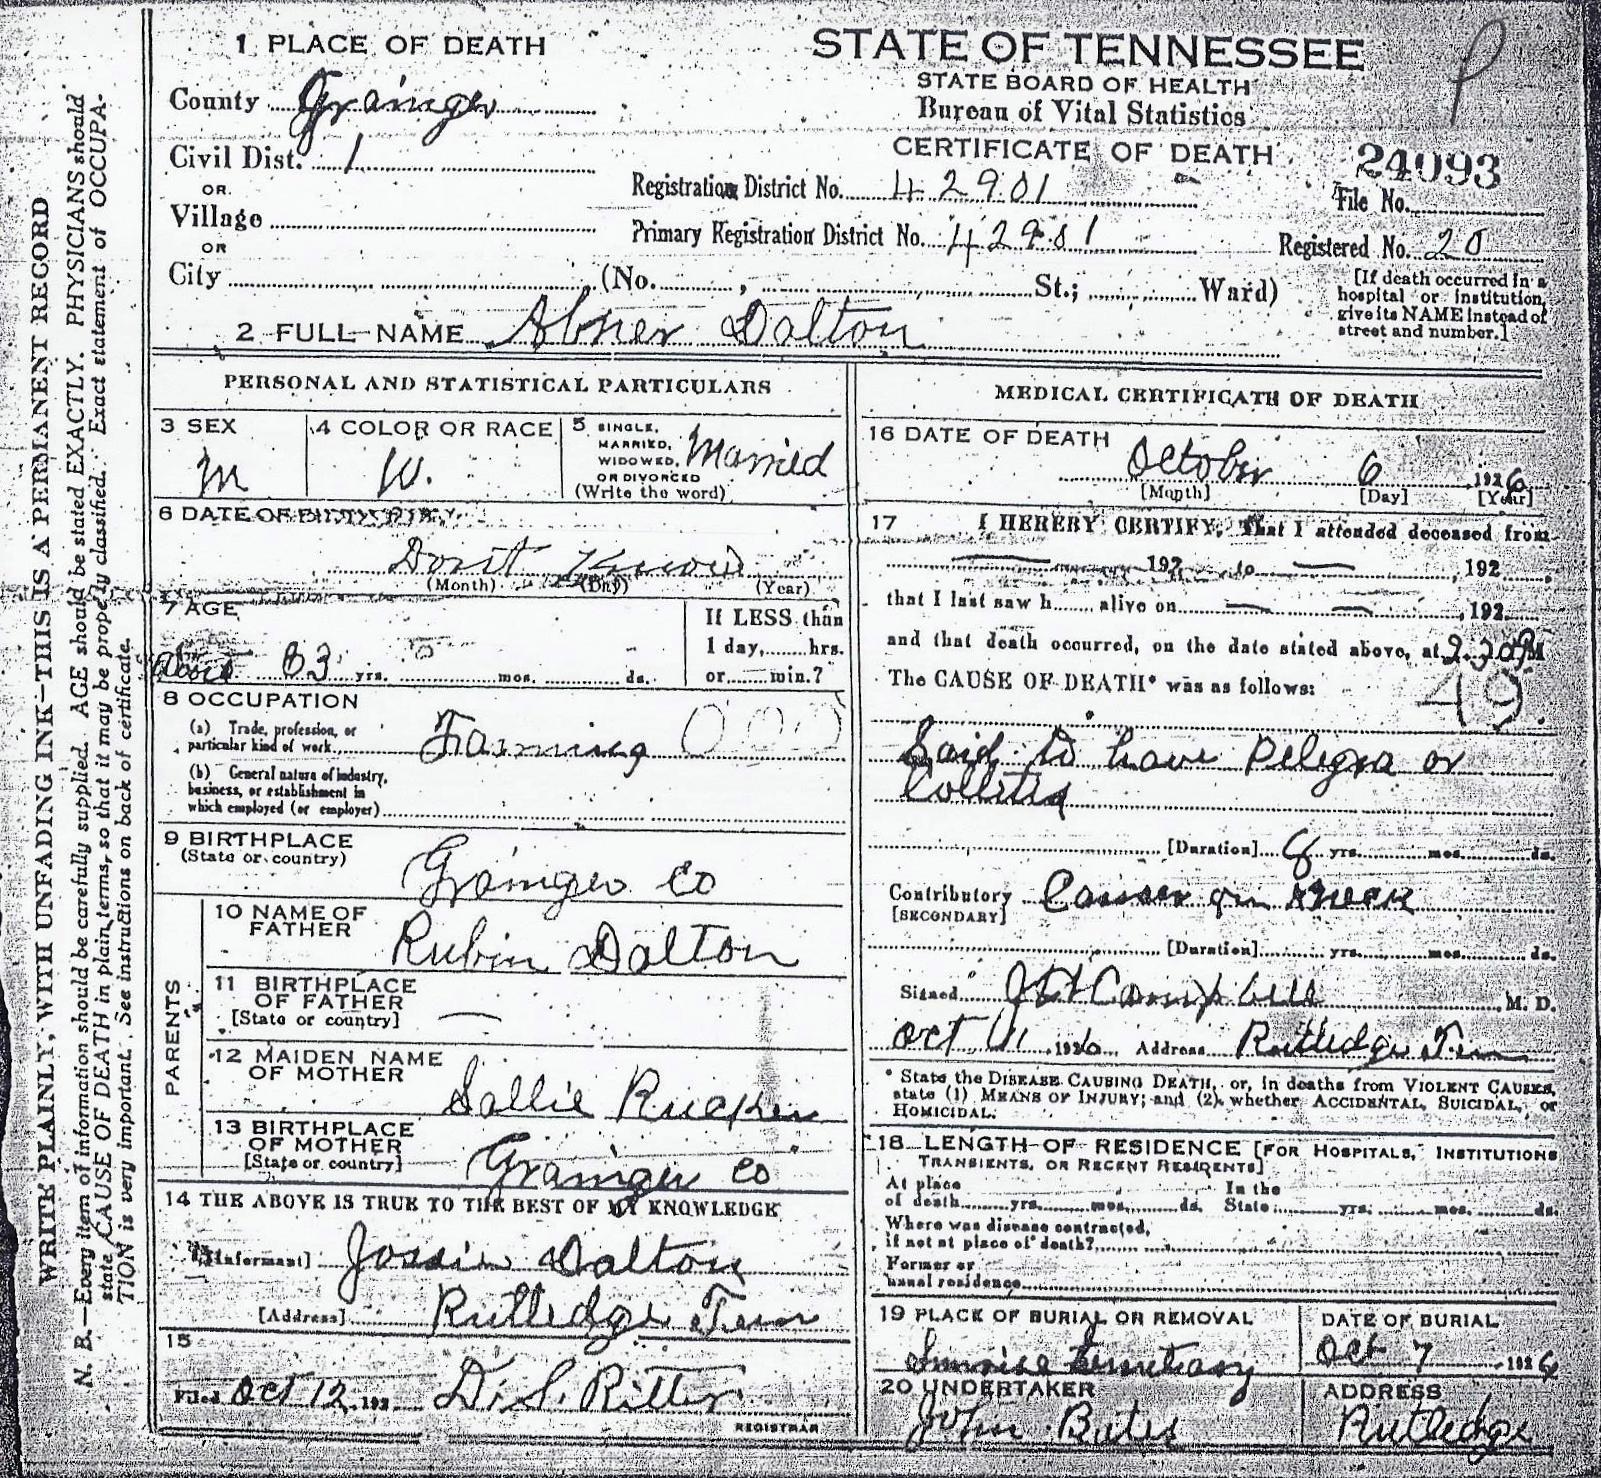 1 PLACE OF DEATH
County Grainger
Civil Dist. 1
OR
Village
OR
City (No. , St.; Ward)
STATE OF TENNESSEE
STATE BOARD OF HEALTH
Bureau of Vital Statistics
CERTIFICATE OF DEATH
24093
File No.
Registration District No. 42901
Primary Registration District No. 42901
Registered No. 20
[If death occurred in a
hospital or institution,
give its NAME instead of
street and number.]
2 FULL NAME Abner Dalton
PERSONAL AND STATISTICAL PARTICULARS
3 SEX
M
4 COLOR OR RACE
W.
5 SINGLE,
MARRIED,
WIDOWED,
OR DIVORCED
(Write the word)
Married
6 DATE OF BIRTH
Dont Know
(Month) (Day) (Year)
7 AGE
About 83 yrs. mos. ds.
If LESS than
1 day, hrs.
or min.?
8 OCCUPATION
(a) Trade, profession, or
particular kind of work Farming 000
(b) General nature of industry,
business, or establishment in
which employed (or employer)
9 BIRTHPLACE
(State or country)
Grainger Co
PARENTS
10 NAME OF
FATHER
Rubin Dalton
11 BIRTHPLACE
OF FATHER
[State or country] —
12 MAIDEN NAME
OF MOTHER
Sallie Rucker
13 BIRTHPLACE
OF MOTHER
[State or country] Grainger Co
14 THE ABOVE IS TRUE TO THE BEST OF MY KNOWLEDGE
[Informant] Jossie Dalton
[Address] Rutledge Tenn
15
Filed Oct 12, 192 D. S. Ritter
REGISTRAR
MEDICAL CERTIFICATE OF DEATH
16 DATE OF DEATH
October 6 1926
[Month] [Day] [Year]
17 I HEREBY CERTIFY, That I attended deceased from
— 192 to — , 192
that I last saw h alive on — — , 192
and that death occurred, on the date stated above, at 2.30 P M
The CAUSE OF DEATH* was as follows:
49
Said to have Pelegra or
Collitis
[Duration] yrs. mos. ds.
Contributory Cancer on Kneck
[SECONDARY]
[Duration] yrs. mos. ds.
Signed Campbell M. D.
Oct 11 1926 Address Rutledge Tenn
* State the DISEASE CAUSING DEATH, or, in deaths from VIOLENT CAUSES,
state (1) MEANS OF INJURY; and (2) whether ACCIDENTAL, SUICIDAL, or
HOMICIDAL.
18 LENGTH OF RESIDENCE [FOR HOSPITALS, INSTITUTIONS
TRANSIENTS, OR RECENT RESIDENTS]
At place In the
of death yrs. mos. ds. State yrs. mos. ds.
Where was disease contracted,
if not at place of death?
Former or
usual residence
19 PLACE OF BURIAL OR REMOVAL
Sunrise Cemetary
DATE OF BURIAL
Oct 7 1926
20 UNDERTAKER
John Bates
ADDRESS
Rutledge
WRITE PLAINLY, WITH UNFADING INK—THIS IS A PERMANENT RECORD
N. B.—Every item of information should be carefully supplied. AGE should be stated EXACTLY. PHYSICIANS should
state CAUSE OF DEATH in plain terms, so that it may be properly classified. Exact statement of OCCUPA-
TION is very important. See instructions on back of certificate.